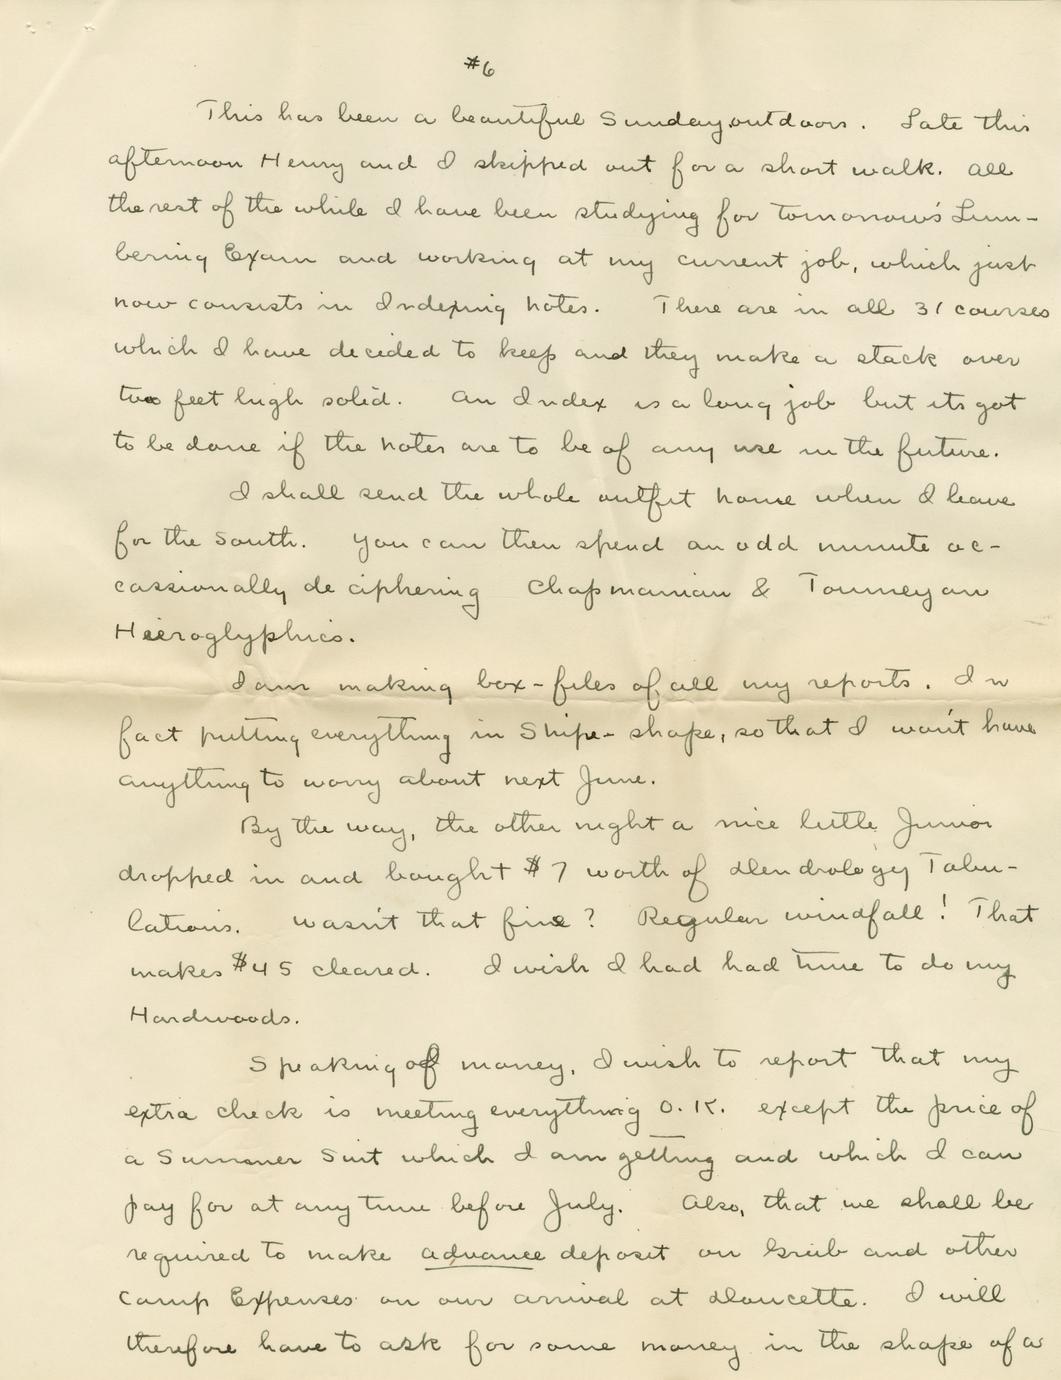 #6
This has been a beautiful Sunday outdoors. Late this
afternoon Henry and I skipped out for a short walk. All
the rest of the while I have been studying for tomorrow's Lum-
bering Exam and working at my current job, which just
now consists in Indexing notes. There are in all 31 courses
which I have decided to keep and they make a stack over
two feet high solid. An Index is a long job but its got
to be done if the notes are to be of any use in the future.
I shall send the whole outfit home when I leave
for the South. You can then spend an odd minute oc-
cassionally deciphering Chapmanian & Toumeyan
Hieroglyphics.
I am making box-files of all my reports. In
fact putting everything in Shipe-shape, so that I won't have
anything to worry about next June.
By the way, the other night a nice little Junior
dropped in and bought $7 worth of Dendrology Tabu-
lations. Wasn't that fine? Regular windfall! That
makes $45 cleared. I wish I had had time to do my
Hardwoods.
Speaking of money, I wish to report that my
extra check is meeting everything O.K. except the price of
a Summer Suit which I am getting and which I can
pay for at any time before July. Also, that we shall be
required to make advance deposit on Grub and other
Camp Expenses on our arrival at Doucette. I will
therefore have to ask for some money in the shape of a